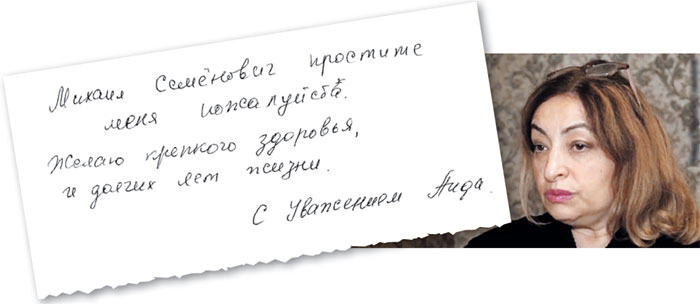 Михаил Семёнович простите
меня пожалуйста.
Желаю крепкого здоровья,
и долгих лет жизни.
С Уважением Аида.